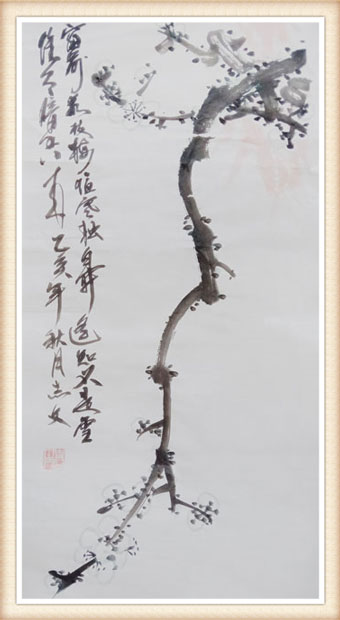 窗前数枝梅凌寒独自开遥知不是雪
惟有暗香来乙亥年秋月志文